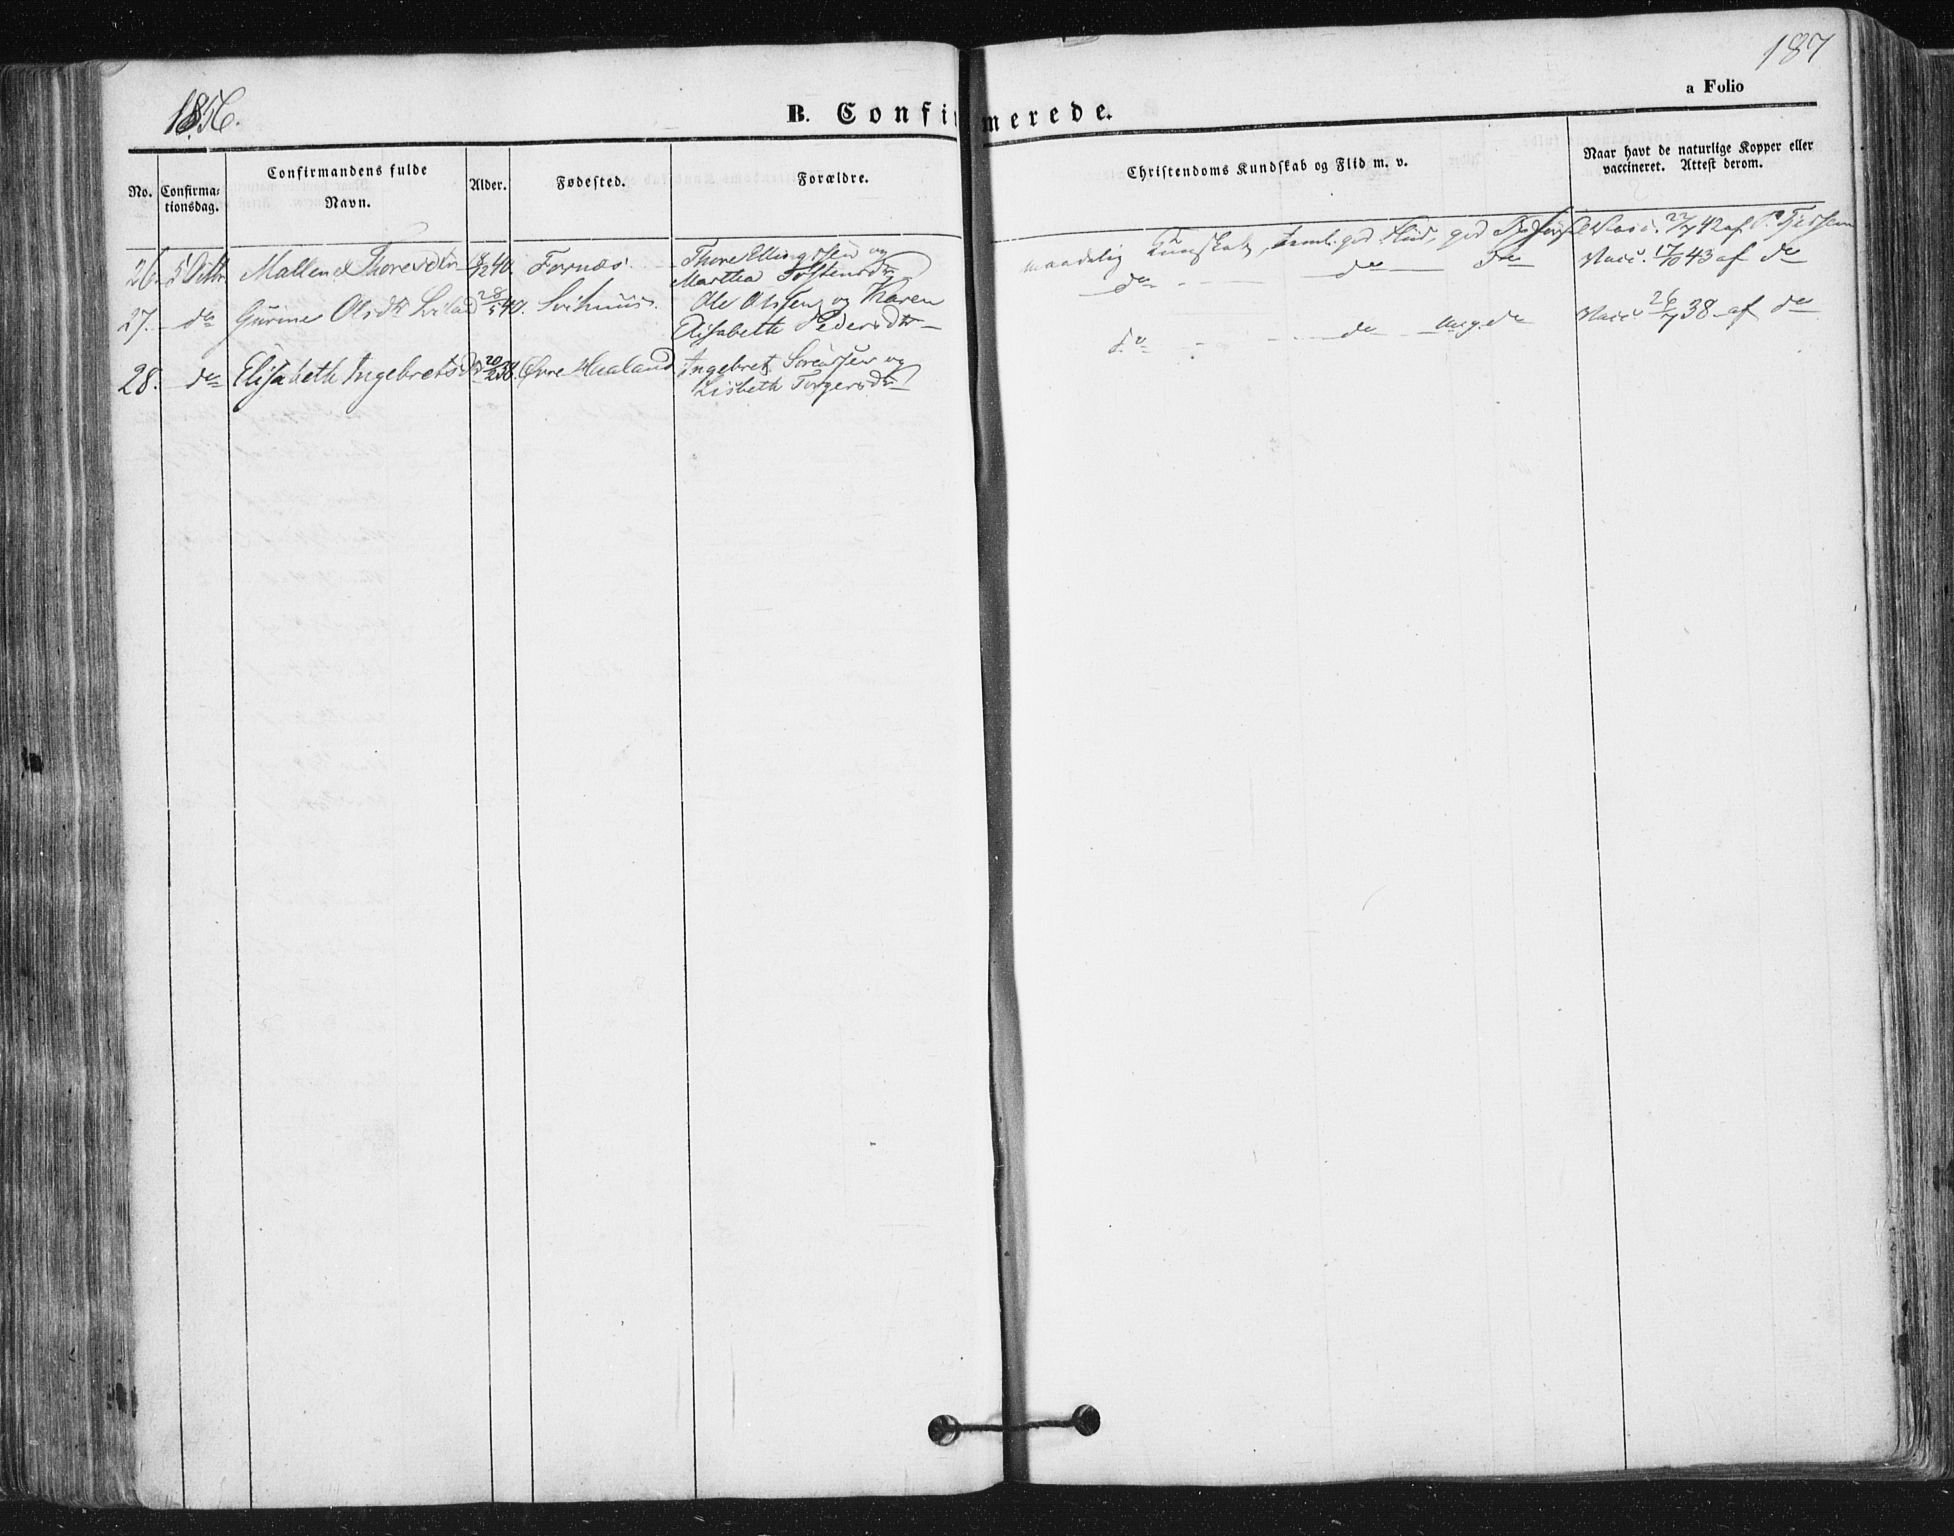 187
a Folio
1856.
B. Confirmerede.
No. Confirmationsdag. Confirmandens fulde Navn. Alder. Fødested. Forældre. Christendoms Kundskab og Flid m. v. Naar havt de naturlige Kopper eller vaccineret. Attest derom.
26. 5 Octbr Mallene Thoresdtr 40. Fornæs. Thore Ellingssen og
Martha
maadelig Kunskab, temlig god Flid, god Vacc. 22/7 42 af
27. do Gurine Olsdtr 28/5 40. Svihuus. Ole Olssen og Karen
Elisabeth Pedersdtr
do do do Vacc. 17/10 43 af do
28. do Elisabeth Ingebretsdtr 20/2 38. Øvre Haaland Ingebret Sørenssen og
Lisbeth Torgersdtr
do do Meg. do Vacc. 26/7 38 af do